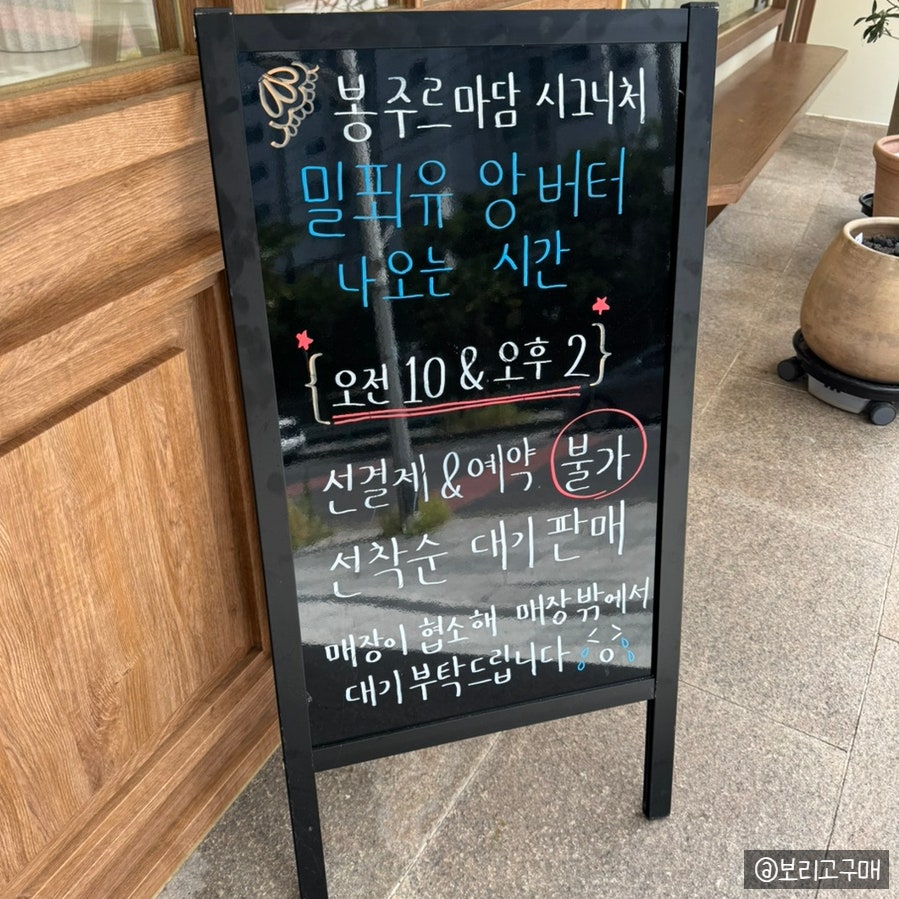 봉주르마담 시그니처
밀푀유 앙버터
나오는 시간
{오전 10 & 오후 2}
선결제 & 예약 불가
선착순 대기 판매
매장이 협소해 매장 밖에서
대기 부탁드립니다
@보리고구매